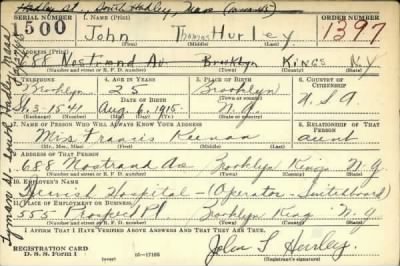 Hadley St., South Hadley, Mass
SERIAL NUMBER 1. NAME (Print) ORDER NUMBER
500 John Thomas Hurley 1397
(First) (Middle) (Last)
2. ADDRESS (Print)
688 Nostrand Av Brooklyn KINGS N.Y
(Number and street or R. F. D. number) (Town) (County) (State)
3. TELEPHONE 4. AGE IN YEARS 5. PLACE OF BIRTH 6. COUNTRY OF CITIZENSHIP
Brooklyn 25 Brooklyn U.S.A
DATE OF BIRTH (Town or county)
St. 3-1541 Aug. 6, 1915 N.Y.
(Exchange) (Number) (Mo.) (Day) (Yr.) (State or country)
7. NAME OF PERSON WHO WILL ALWAYS KNOW YOUR ADDRESS 8. RELATIONSHIP OF THAT PERSON
Mrs. Francis Keenan aunt
(Mr., Mrs., Miss) (First) (Middle) (Last)
9. ADDRESS OF THAT PERSON
688 Nostrand Av Brooklyn Kings N.Y
(Number and street or R. F. D. number) (Town) (County) (State)
10. EMPLOYER'S NAME
Jewish Hospital - (Operator - Switchboard)
11. PLACE OF EMPLOYMENT OR BUSINESS
555 Prospect Pl. Brooklyn King N.Y
(Number and street or R. F. D. number) (Town) (County) (State)
I AFFIRM THAT I HAVE VERIFIED ABOVE ANSWERS AND THAT THEY ARE TRUE.
REGISTRATION CARD
D. S. S. Form 1 16-17105
John T Hurley
Lyman St - South Hadley Mass